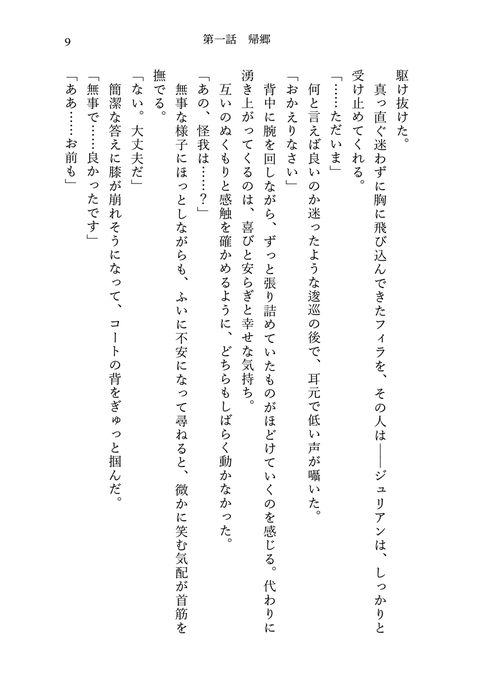 9
第一話　帰郷
駆け抜けた。
　真っ直ぐ迷わずに胸に飛び込んできたフィラを、その人は――ジュリアンは、しっかりと
受け止めてくれる。
「……ただいま」
　何と言えば良いのか迷ったような逡巡の後で、耳元で低い声が囁いた。
「おかえりなさい」
　背中に腕を回しながら、ずっと張り詰めていたものがほどけていくのを感じる。代わりに
湧き上がってくるのは、喜びと安らぎと幸せな気持ち。
　互いのぬくもりと感触を確かめるように、どちらもしばらく動かなかった。
「あの、怪我は……？」
　無事な様子にほっとしながらも、ふいに不安になって尋ねると、微かに笑む気配が首筋を
撫でる。
「ない。大丈夫だ」
　簡潔な答えに膝が崩れそうになって、コートの背をぎゅっと掴んだ。
「無事で……良かったです」
「ああ……お前も」